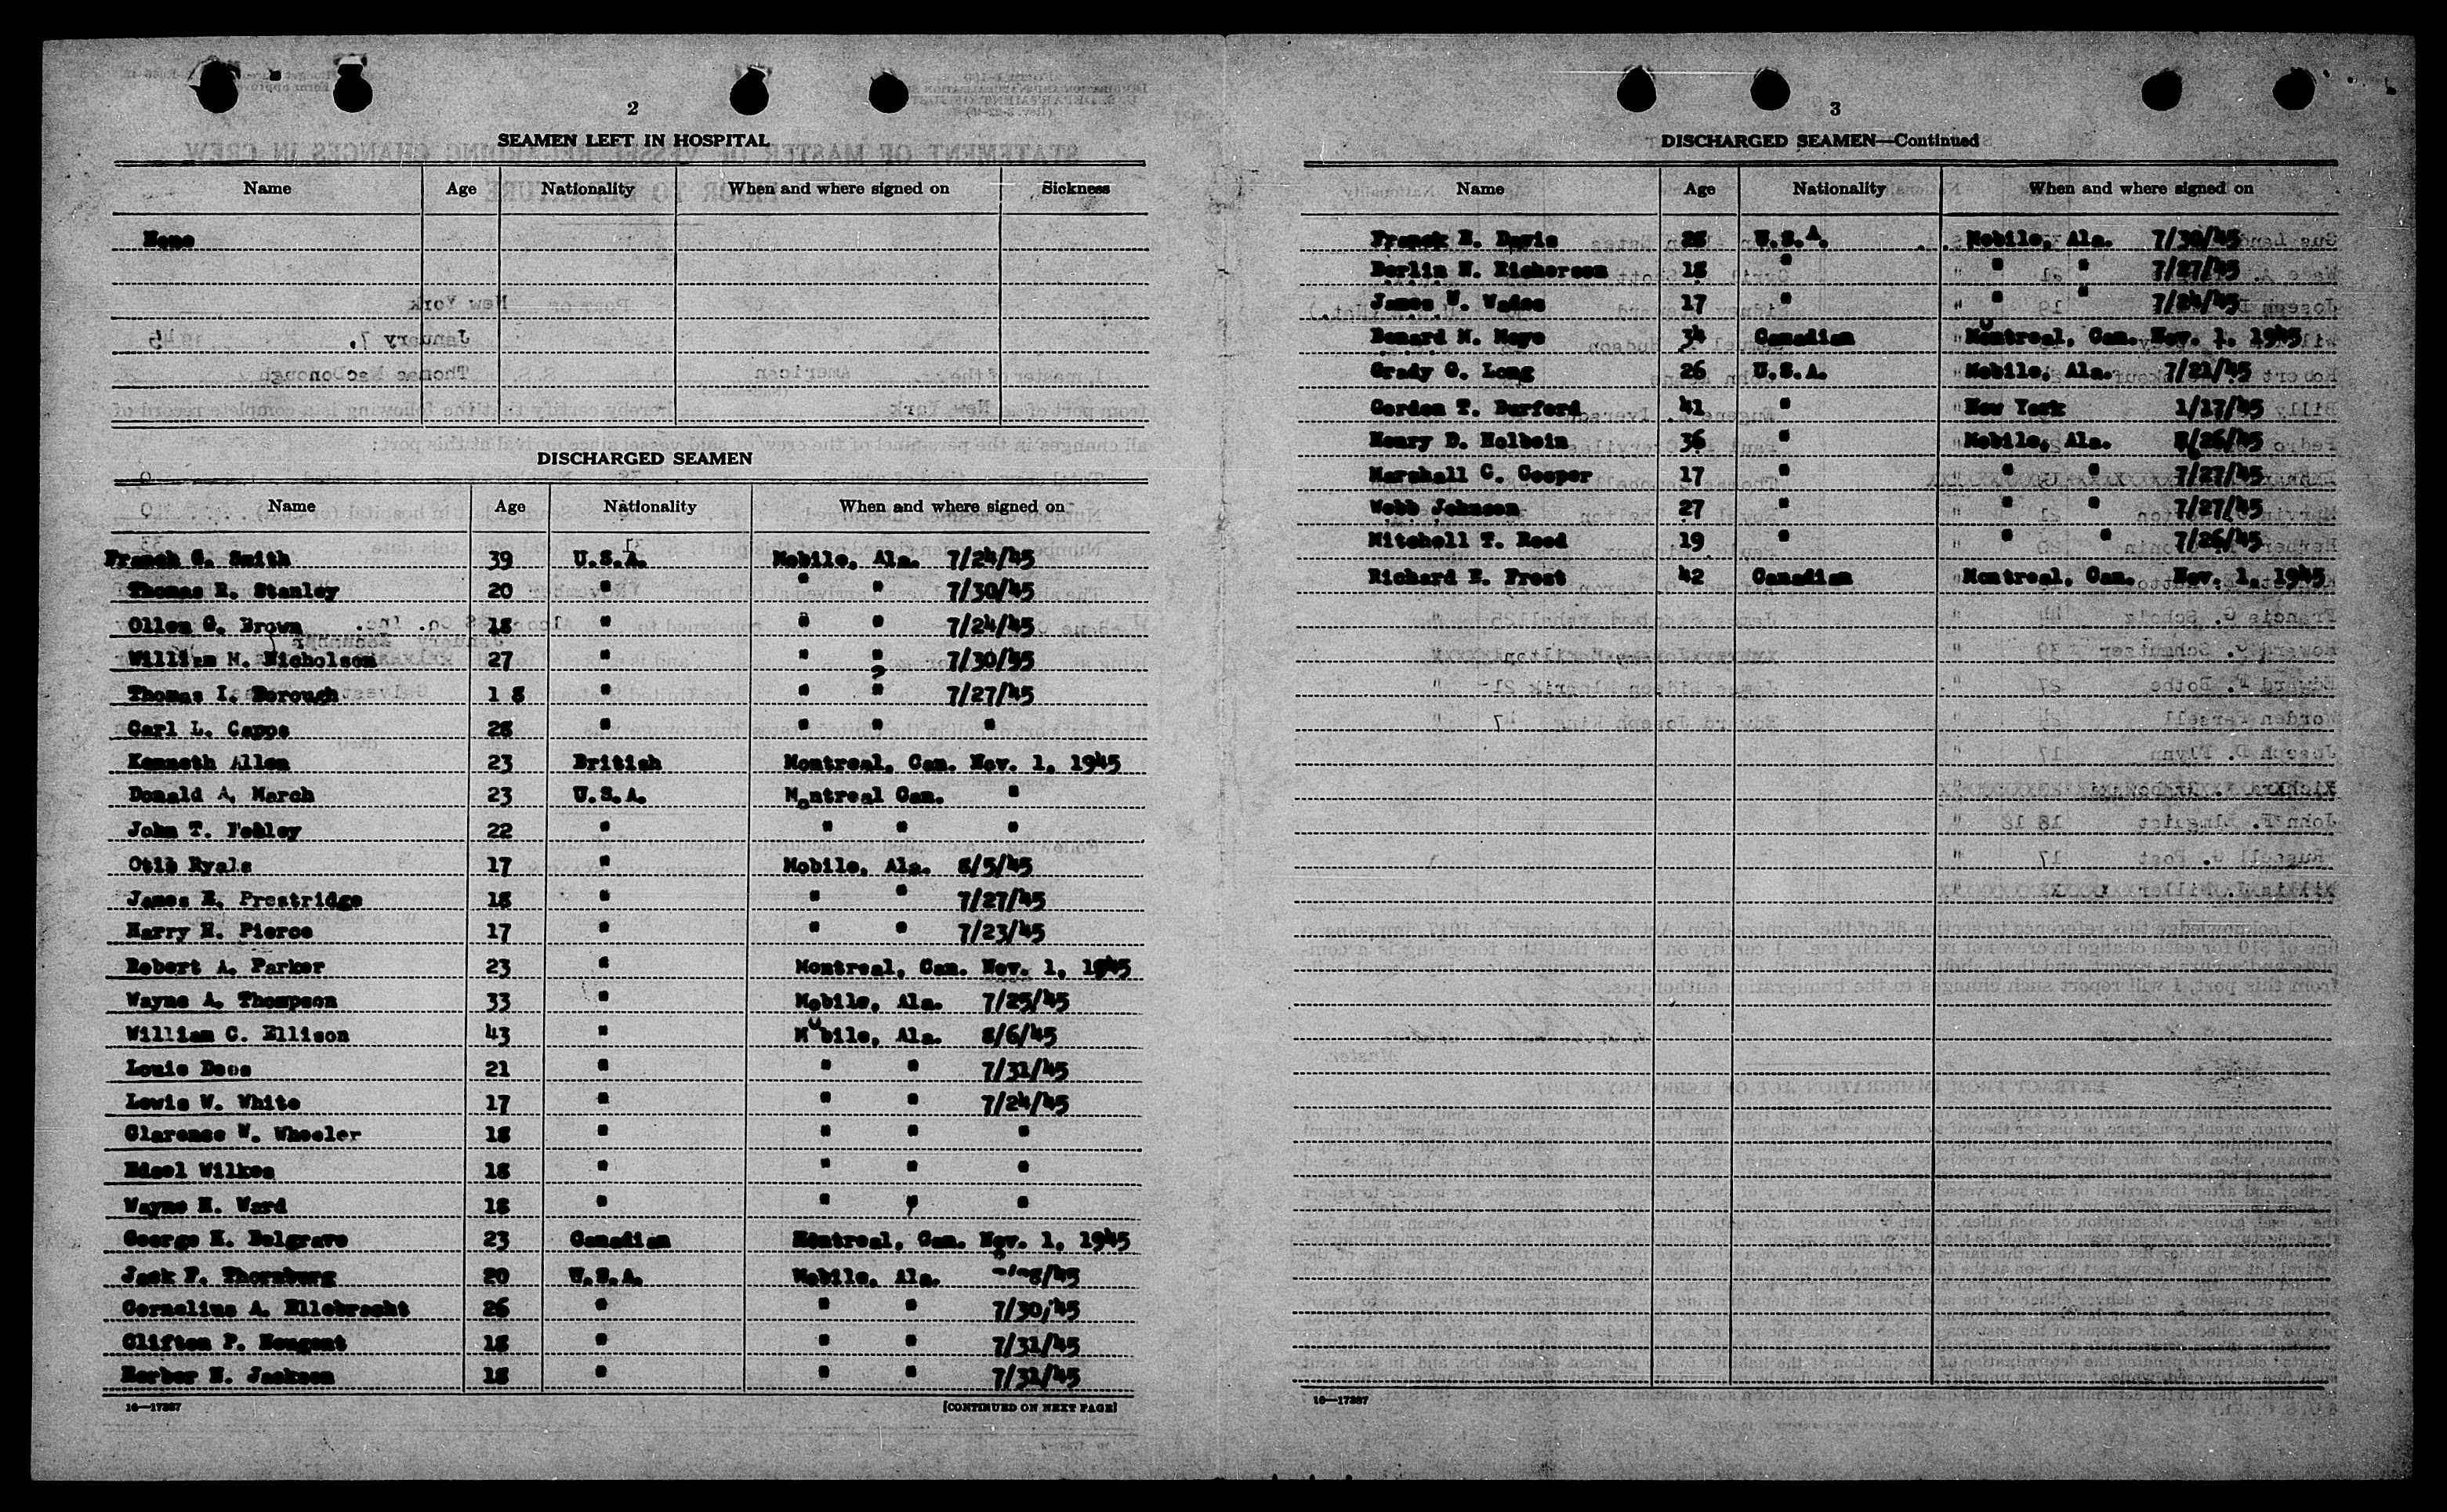 2
SEAMEN LEFT IN HOSPITAL
Name Age Nationality When and where signed on Sickness
None
DISCHARGED SEAMEN
Name Age Nationality When and where signed on
French C. Smith 39 U.S.A. Mobile, Ala. 7/24/45
Thomas R. Stanley 20 " " " 7/30/45
Ollen G. Brown 18 " " " 7/24/45
William M. Nicholson 27 " " " 7/30/45
Thomas I. Borough 1 8 " " " 7/27/45
Carl L. Capps 28 " " " "
Kenneth Allen 23 British Montreal, Can. Nov. 1, 1945
Donald A. March 23 U.S.A. Montreal Can. "
John T. 22 " " " "
Otis Ryals 17 " Mobile, Ala. 8/5/45
James E. Prestridge 18 " " " 7/27/45
Harry H. Pierce 17 " " " 7/23/45
Robert A. Parker 23 " Montreal, Can. Nov. 1, 1945
Wayne A. Thompson 33 " Mobile, Ala. 7/25/45
William C. Ellison 43 " Mobile, Ala. 8/6/45
Louie Dees 21 " " " 7/31/45
Lewis W. White 17 " " " 7/24/45
Clarence W. Wheeler 18 " " " "
Edsel Wilkes 18 " " " "
Wayne H. Ward 18 " " " "
George H. Belgrave 23 Canadian Montreal, Can. Nov. 1, 1945
Jack F. Thornburg 20 U.S.A. Mobile, Ala.
Cornelius A. Ellebrecht 26 " " " 7/30/45
Clifton P. Nougent 18 " " " 7/31/45
Herber H. Jackson 18 " " " 7/31/45
16—17387 [CONTINUED ON NEXT PAGE]
3
DISCHARGED SEAMEN—Continued
Name Age Nationality When and where signed on
Franck E. Davis 28 U.S.A. Mobile, Ala. 7/30/45
Berlin N. Richerson 18 " " " 7/27/45
James W. Wades 17 " " " 7/24/45
Benard M. Moye 34 Canadian Montreal, Can. Nov. 1. 1945
Grady O. Long 26 U.S.A. Mobile, Ala. 7/21/45
Gordon T. Burford 41 " New York 1/17/45
Henry D. Holbein 36 " Mobile, Ala. 8/26/45
Marshall C. Cooper 17 " " " 7/27/45
Webb Johnson 27 " " " 7/27/45
Mitchell T. Reed 19 " " " 7/26/45
Richard E. Frost 42 Canadian Montreal, Can. Nov. 1, 1945
16—17387